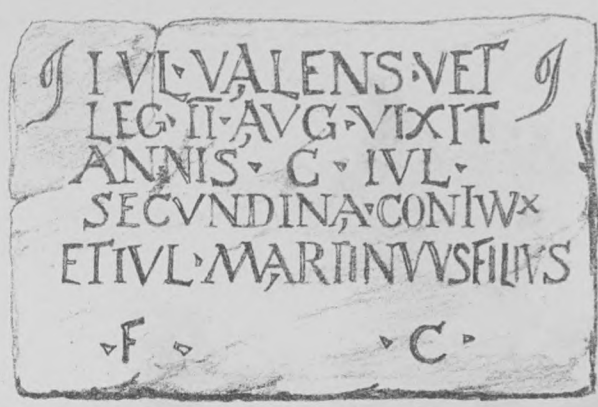 IVL·VALENS·VET
LEG·II·AVG·VIXIT
ANNIS·C·IVL·
SECVNDINA·CONIVVX
ETIVL·MARTINVVSFILIVS
·F· ·C·